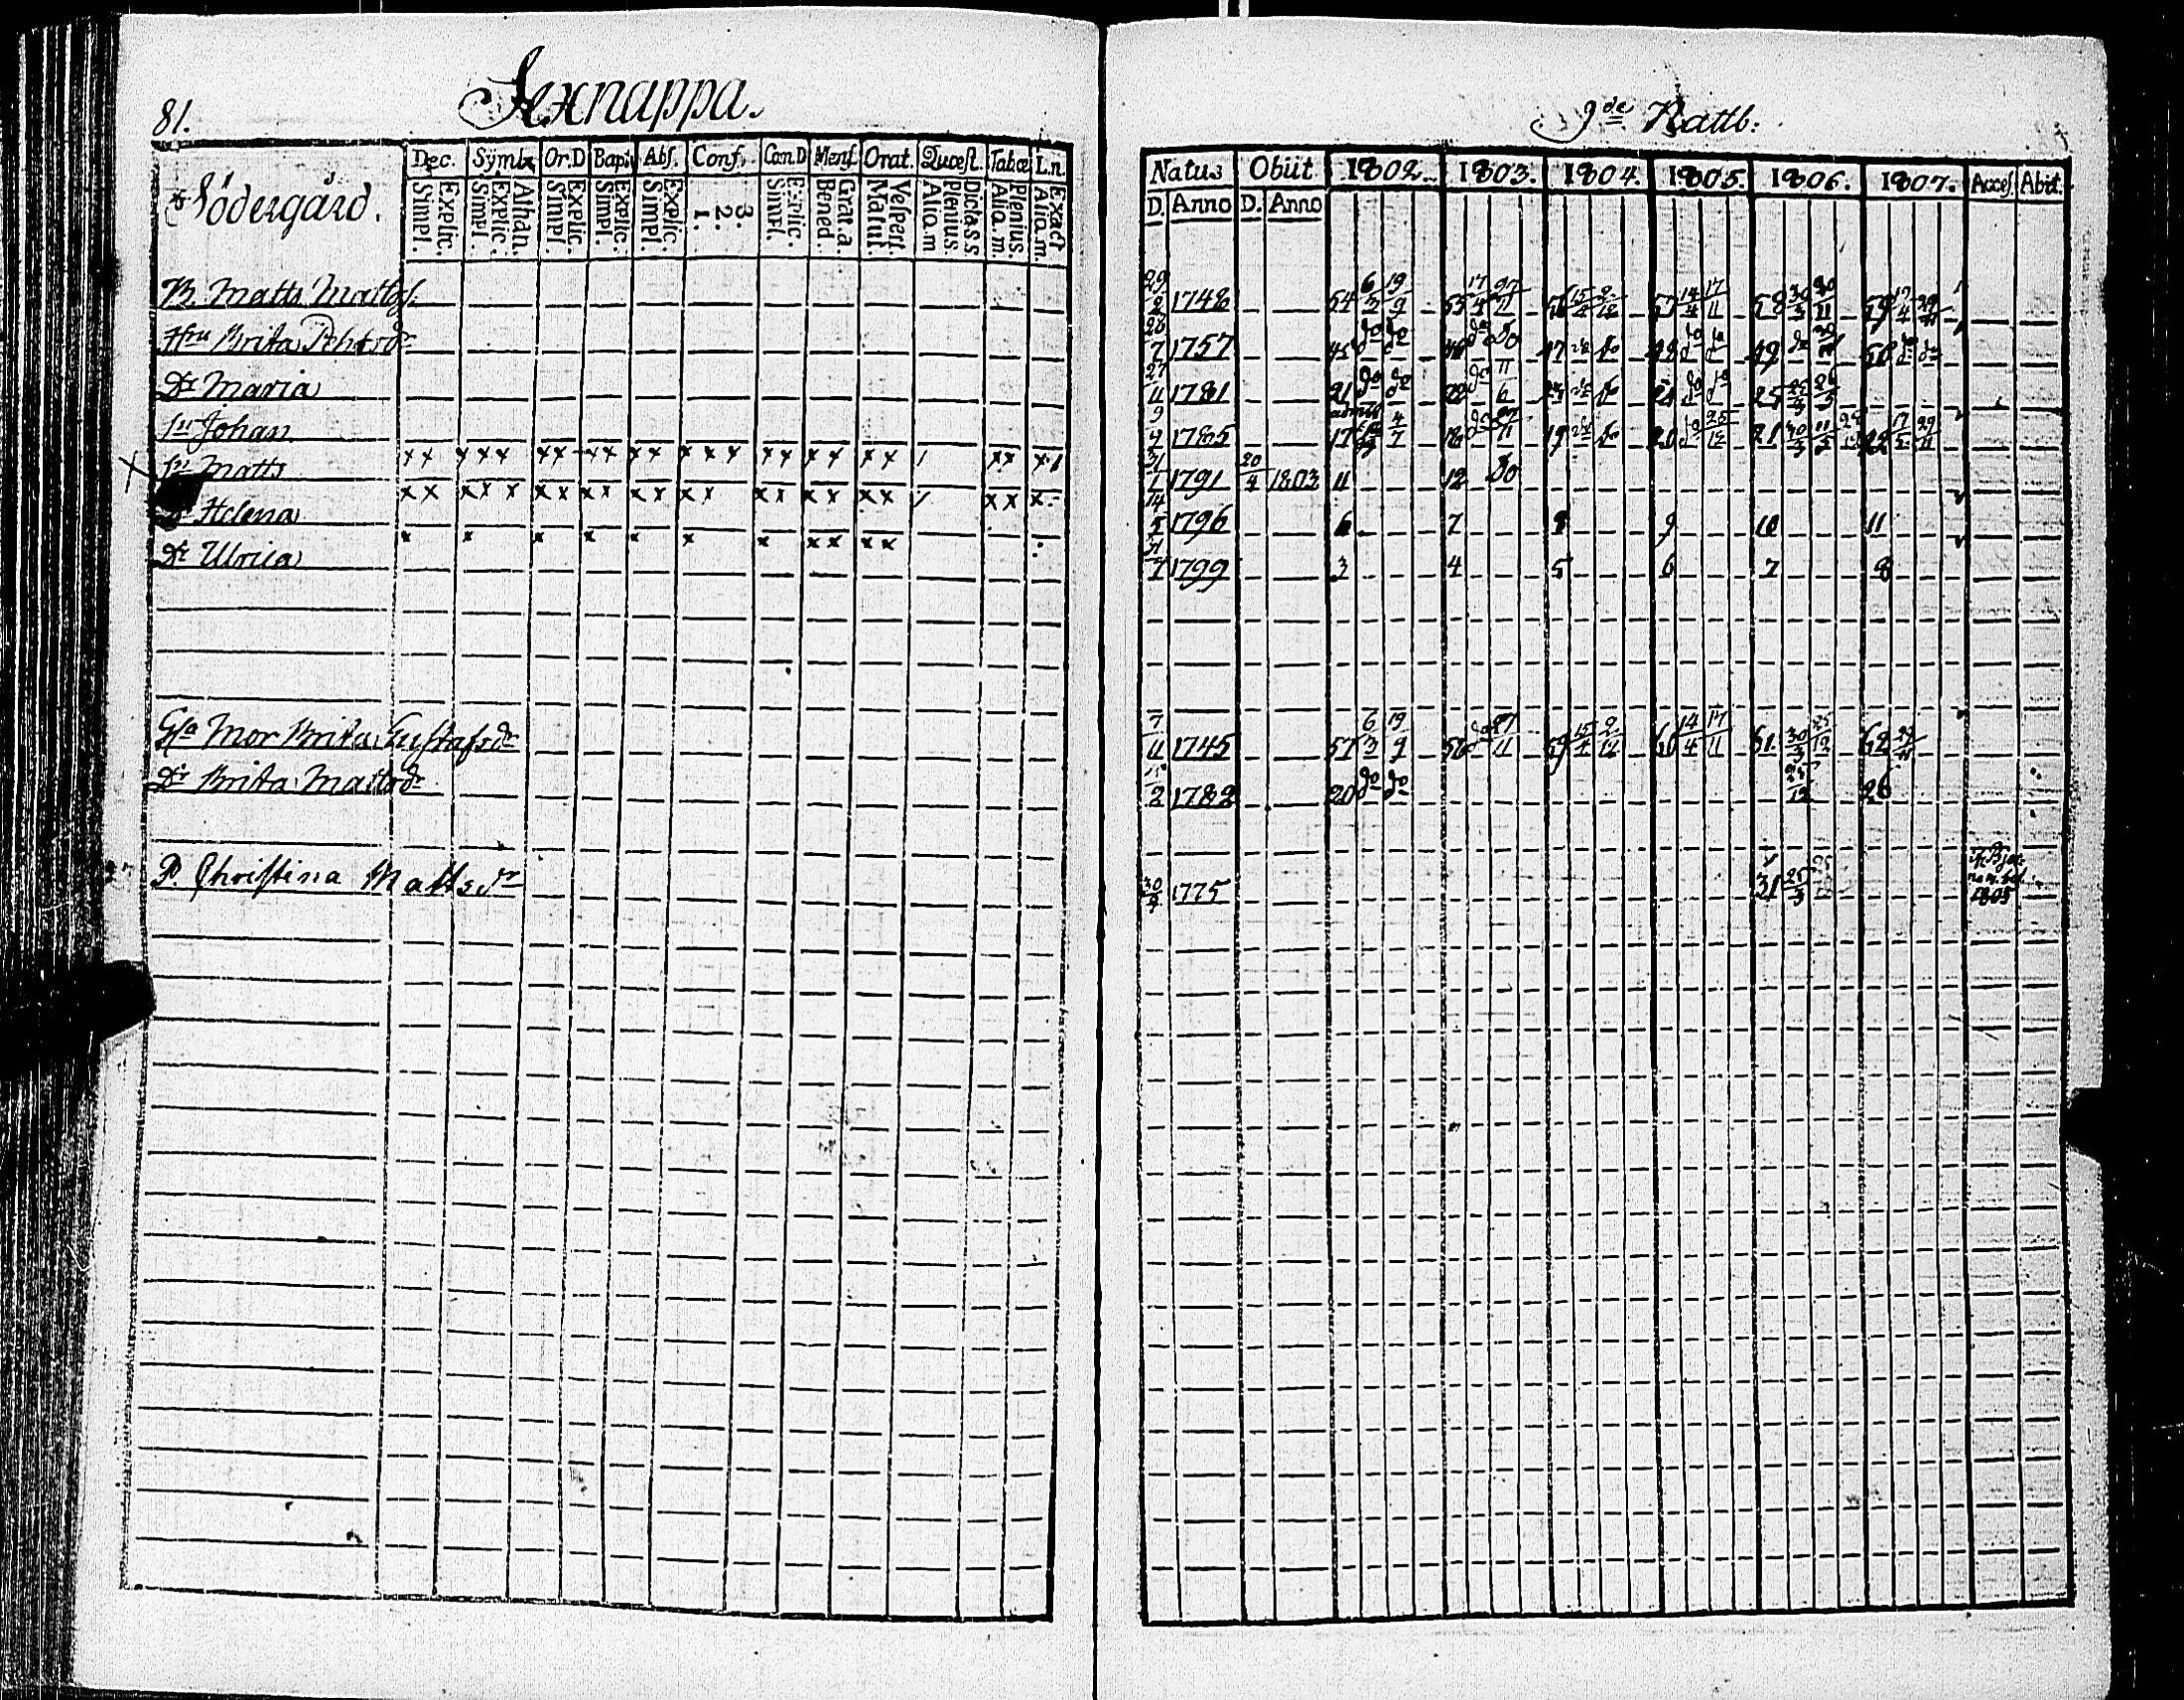 81.
Sexnappa.
9de Rattb:
Södergård.
Dec. Symb. Or.D Bapt. Abs. Conf. Cœn.D Mens. Orat. Quæst. Tabæ L.n.
Explic. Simpl. Athan. Explic. Simpl. Explic. Simpl. Explic. Simpl. Explic. Simpl. 3. 2. 1. Explic. Simpl. Grat.a. Bened. Vespert. Matut. Dicta s s Plenius. Aliq.m Plenius. Aliq.m. Exact Aliq.m.
Natus Obiit 1802. 1803. 1804. 1805. 1806. 1807. Acces. Abiit.
D. Anno D. Anno
B. Matts Mattss. 29/2 1748 54 6/3 19/9 55 17/4 27/11 56 15/4 2/12 57 14/4 17/11 58 30/3 59
Hru Brita 28/7 1757 45 do do do do 47 48 do do 49 do 50
Dr Maria 27/11 1781 21 do do 22 do 11/6 do do 25
Sn Johan 9/4 1785 17 4/7 18 27/11 19 20 do 25/12 21 30/3 11/5 22 29/11
Sn Matts x x x x x x x x x x x x x x x x x x x x x 31/1 1791 20/4 1803 11 12 do
Helena x x x x x x x x x x x x x x x x x x x x x 14/5 1796 6 7 8 9 10 11
Dr Ulrica x x x x x x x x x x x 31/7 1799 3 4 5 6 7 8
Gla Mor Brita Gustafsdr 7/11 1745 57 6/3 19/9 58 do 27/11 59 15/4 2/12 60 14/4 17/11 61 30/3 25/12 62 29/11
Dr Brita Mattsdr 15/2 1782 20 do do 25/12 26
P. Christina Mattsdr 30/9 1775 31 25/3 1805